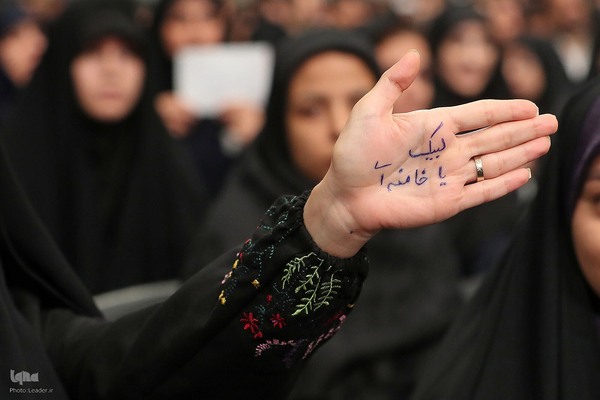 لبیک
یا خامنه ای
iqna
Photo:Leader.ir